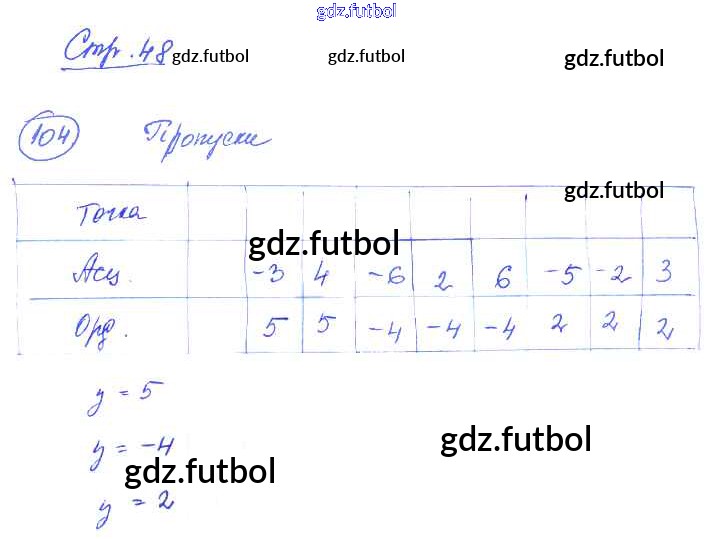 gdz.futbol
Стр. 48 gdz.futbol gdz.futbol gdz.futbol
104 Пропуски
gdz.futbol
Точка
gdz.futbol
Асц. -3 4 -6 2 6 -5 -2 3
Орд. 5 5 -4 -4 -4 2 2 2
y = 5
gdz.futbol
y = -4
gdz.futbol
y = 2